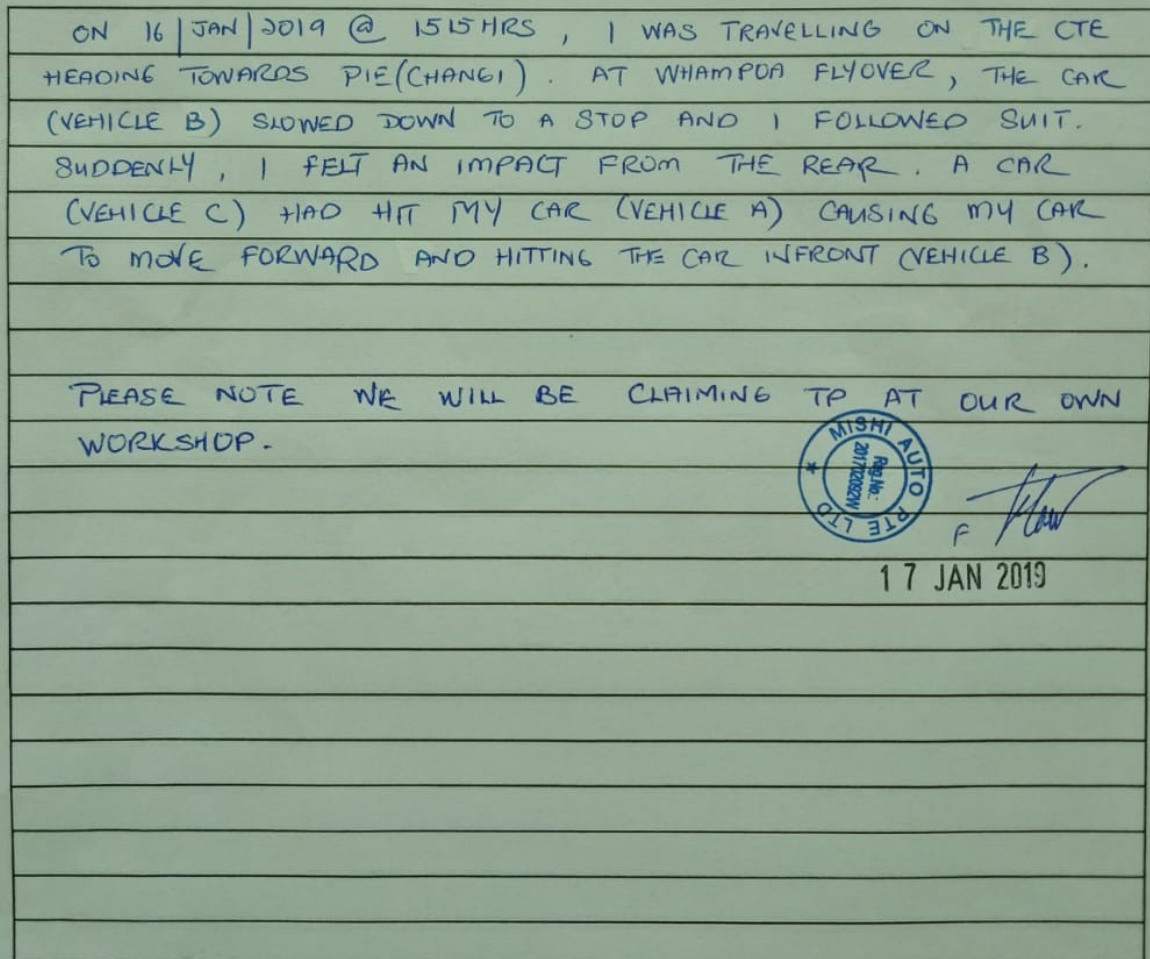 ON 16|JAN|2019 @ 1515 HRS, I WAS TRAVELLING ON THE CTE
HEADING TOWARDS PIE(CHANGI). AT WHAMPOA FLYOVER, THE CAR
(VEHICLE B) SLOWED DOWN TO A STOP AND I FOLLOWED SUIT.
SUDDENLY, I FELT AN IMPACT FROM THE REAR. A CAR
(VEHICLE C) HAD HIT MY CAR (VEHICLE A) CAUSING MY CAR
TO MOVE FORWARD AND HITTING THE CAR INFRONT (VEHICLE B).
PLEASE NOTE WE WILL BE CLAIMING TP AT OUR OWN
WORKSHOP.
MISHI AUTO PTE LTD
Reg.No.:
F
17 JAN 2019